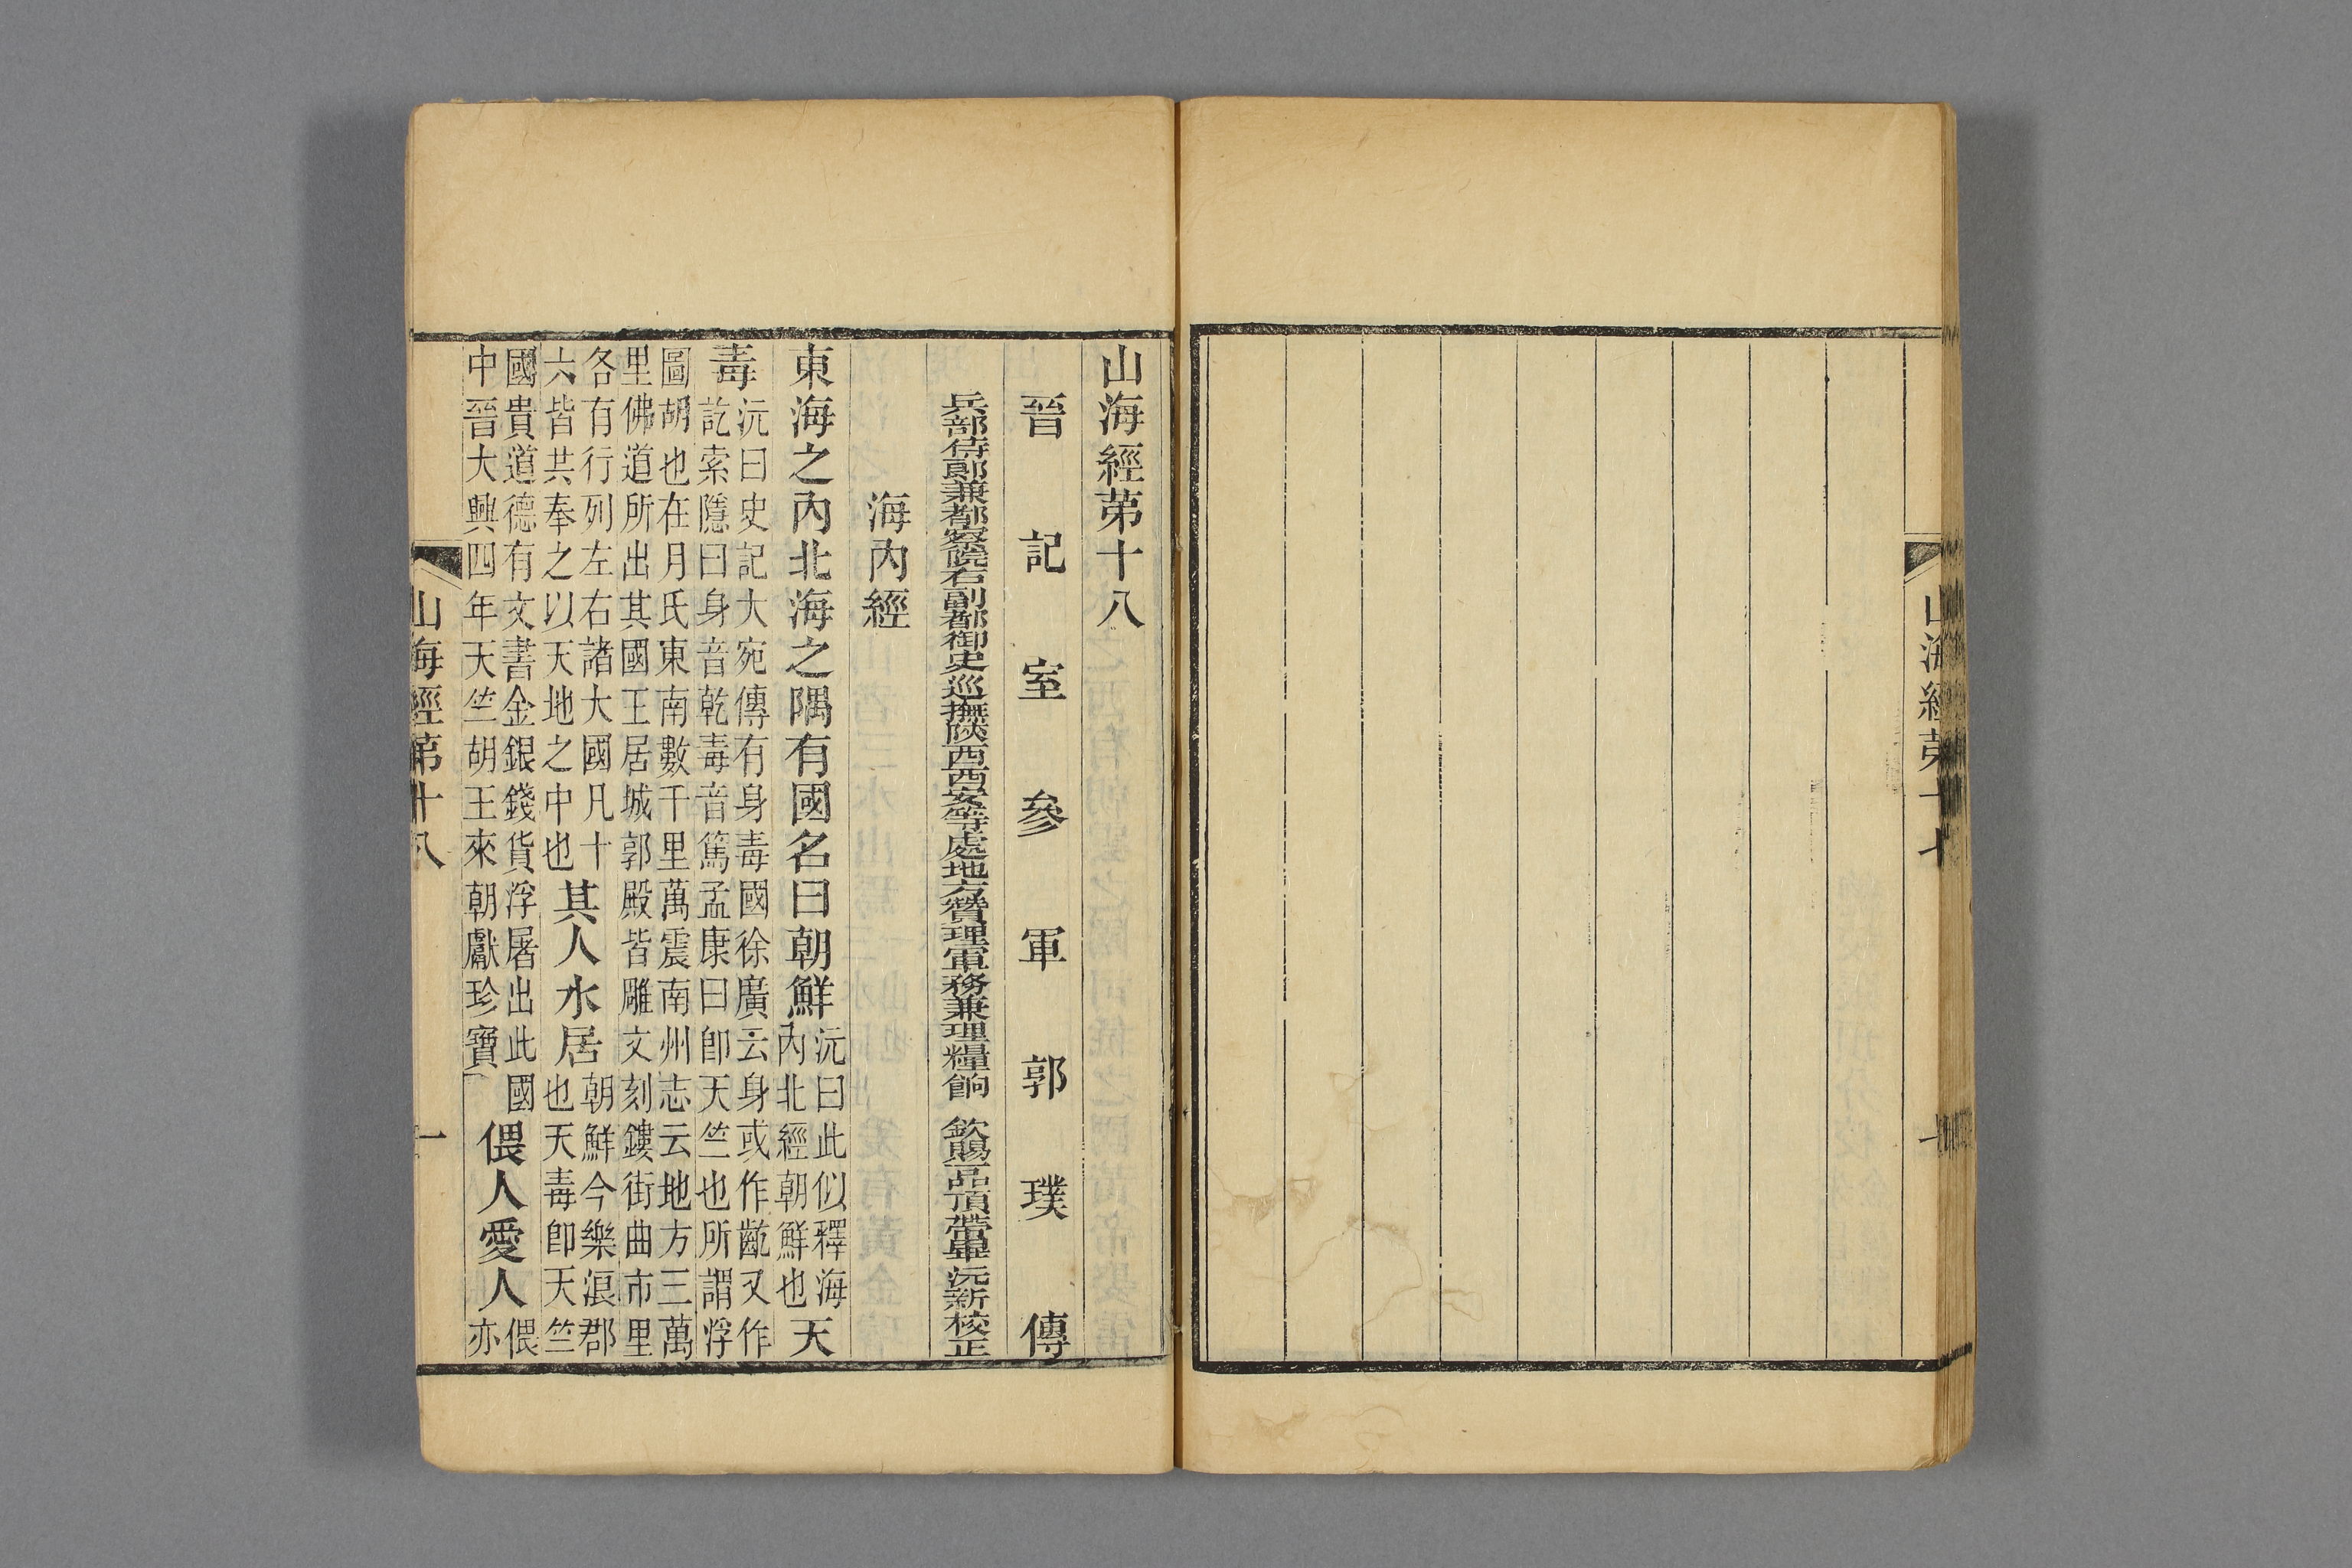 山海經苐十七
山海經苐十八
晉記室參軍郭璞傳
兵部侍郎兼都察院右副都御史巡撫陝西西安等處地方贊理軍務兼理糧餉 欽賜一品頂帶畢沅新校正
海內經
東海之內北海之隅有國名曰朝鮮
沅曰此似釋海
內北經朝鮮也
天
毒
沅曰史記大宛傳有身毒國徐廣云身或作齕又作
訖索隱曰身音乾毒音篤孟康曰卽天竺也所謂浮
圖胡也在月氏東南數千里萬震南州志云地方三萬
里佛道所出其國王居城郭殿皆雕文刻鏤街曲市里
各有行列左右諸大國凡十
六皆共奉之以天地之中也
其人水居
朝鮮今樂浪郡
也天毒卽天竺
國貴道德有文書金銀錢貨浮屠出此國
中晉大興四年天竺胡王來朝獻珍寶
偎人愛人
偎
亦
山海經第十八
一